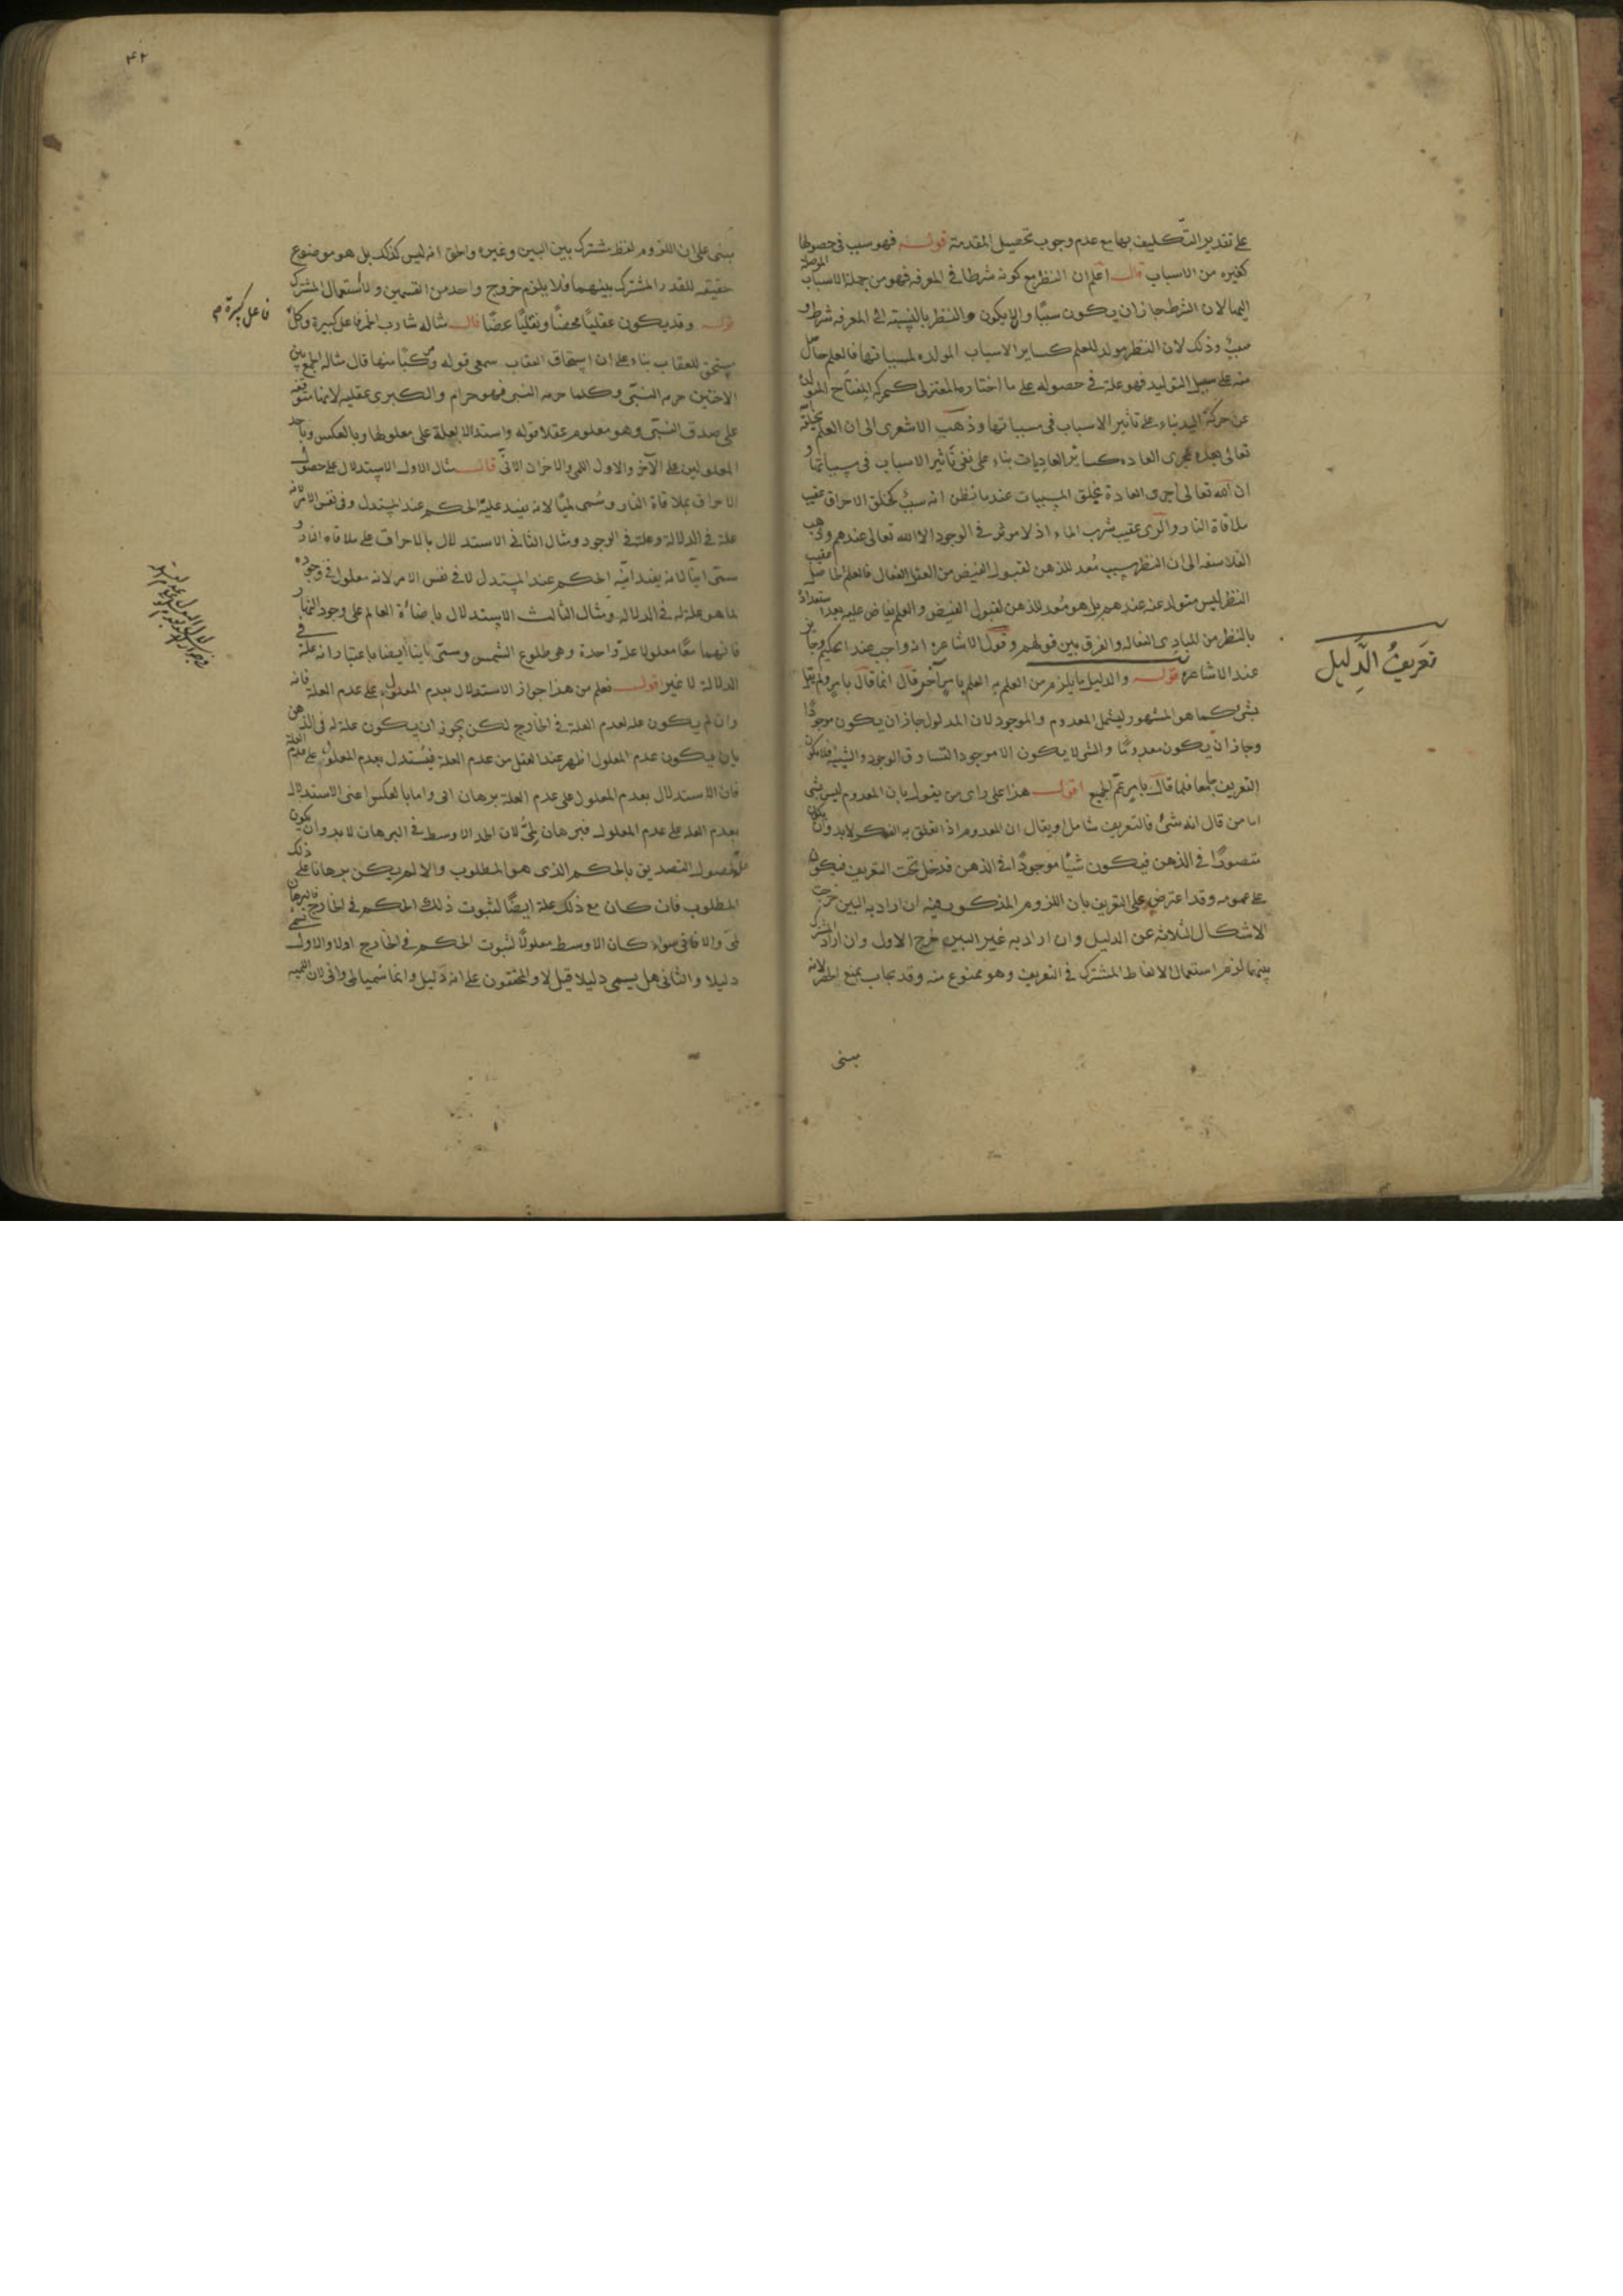 على تقدير التكليف بها مع عدم وجوب تحصيل المقدمة قوله فهو سبب فى حصولها
كغيره من الاسباب قال اعلم ان النظر مع كونه شرطا فى المعرفه فهو من جملة الاسباب الموصلة
اليها لان الشرط جاز ان يكون سببًا والا يكون والنظر بالنسبة الى المعرفه شرط و
سبب وذلك لان النظر مولد للعلم كساير الاسباب المولده لمسبباتها فالعلم حاصل
منه على سبيل التوليد فهو علة فى حصوله على ما اختاره المعتزلى كحركه المفتاح المتولدة
عن حركة اليد بناء على تأثير الاسباب فى مسبباتها وذهب الاشعرى الى ان العلم يخلقه
تعالى بمجرى العاده كسائر العاديات بناء على نفى تأثير الاسباب فى مسبباتها و
ان الله تعالى اجرى العادة بخلق المسببات عند ما يظن انه سبب كخلق الاحراق عقيب
ملاقاة النار والرى عقيب شرب الماء اذ لا موثر فى الوجود الا الله تعالى عندهم وذهب
الفلاسفه الى ان النظر سبب مُعد للذهن لقبول الفيض من العقل الفعال فالعلم الحاصل عقيب
النظر ليس متولد عنه عندهم بل هو مُعد للذهن لقبول الفيض والعلم يفاض عليه بعد استعداده
بالنظر من المبادى الفعاله والفرق بين قولهم وقول الاشاعرة انه واجب عند الحكيم وجايز
عند الاشاعره قوله والدليل ما يلزم من العلم به العلم بامر آخر قال انما قال بامر ولم يقل
بشئ كما هو المشهور ليشمل المعدوم والموجود لان المدلول جاز ان يكون موجودًا
وجاز ان يكون معدومًا والشئ لا يكون الا موجودا لتساوق الوجود والشيئية فلا يكون
التعريف جامعا فلما قال بامر عمّ الجميع اقول هذا على راى من يقول بان المعدوم ليس بشئ
اما من قال انه شئ فالتعريف شامل او يقال ان المعدوم اذا تعلق به الفكر لا بد وان يكون
متصورًا فى الذهن فيكون شيئًا موجودًا فى الذهن فدخل تحت التعريف فيكون
على عمومه وقد اعترض على التعريف بان اللزوم المذكور فيه ان اراد به البين خرجت
الاشكال الثلاثه عن الدليل وان اراد به غير البين خرج الاول وان اراد المشترك
بينهما لزم استعمال الالفاظ المشتركه فى التعريف وهو ممنوع منه وقد يجاب بمنع الحصر لانه
مبنى
تعريفُ الدَّليل
٤٢
مبنى على ان اللزوم لفظ مشترك بين البين وغيره والحق انه ليس كذلك بل هو موضوع
حقيقه للقدر المشترك بينهما فلا يلزم خروج واحد من القسمين ولا استعمال المشترك
قوله وقد يكون عقليًا محضًا ونقليًا محضًا قال مثاله شارب الخمر فاعل كبيرة وكل
يستحق للعقاب بناء على ان استحقاق العقاب سمعى قوله ومركبًا منها قال مثاله الجمع بين
الاختين حرمه النبىّ وكلما حرمه النبى فهو حرام والكبرى عقليه لانها متوقفه
على صدق النبىّ وهو معلوم عقلا قوله واستدلال بعلة على معلولها وبالعكس وباحد
المعلولين على الآخر والاول اللمى والاخران الانّى قال مثال الاول الاستدلال على حصول
الاحراق بملاقاة النار وسُمى لميًا لانه يفيد عليّة الحكم عند المستدل وفى نفس الامر لانه
علة فى الدلالة وعلة فى الوجود ومثال الثانى الاستدلال بالاحراق على ملاقاه النار و
سمى انيًا لانه يفيد انيّه الحكم عند المستدل لا فى نفس الامر لانه معلول فى وجوده
لما هو علة له فى الدلاله ومثال الثالث الاستدلال باضائة العالم على وجود النهار
فانهما معًا معلولا علّة واحدة وهى طلوع الشمس وسمى انيا ايضا باعتبار انه علة فى
الدلالة لا غير قوله فعلم من هذا جواز الاستدلال بعدم المعلول على عدم العلة فانه
وان لم يكون علة لعدم العلة فى الخارج لكن يجوز ان يكون علة له فى الذهن
بان يكون عدم المعلول اظهر عند العقل من عدم العلة فيُستدل بعدم المعلول على عدم العلة
فان الاستدلال بعدم المعلول على عدم العلة برهان انى واما بالعكس اعنى الاستدلال
بعدم العله على عدم المعلول فبرهان لمىّ لان الحد الاوسط فى البرهان لا بد وان يكون
علّة لحصول التصديق بالحكم الذى هو المطلوب والا لم يكن برهانا على ذلك
المطلوب فان كان مع ذلك علة ايضًا لثبوت ذلك الحكم فى الخارج فالبرهان
لمى والا فانى سواء كان الاوسط معلولًا لثبوت الحكم فى الخارج اولا والاول يسمى
دليلا والثانى هل يسمى دليلا قيل لا والمحققون على انه دليل وانما سُميا لمى وانى لان اللميه
فاعل كبيرة م